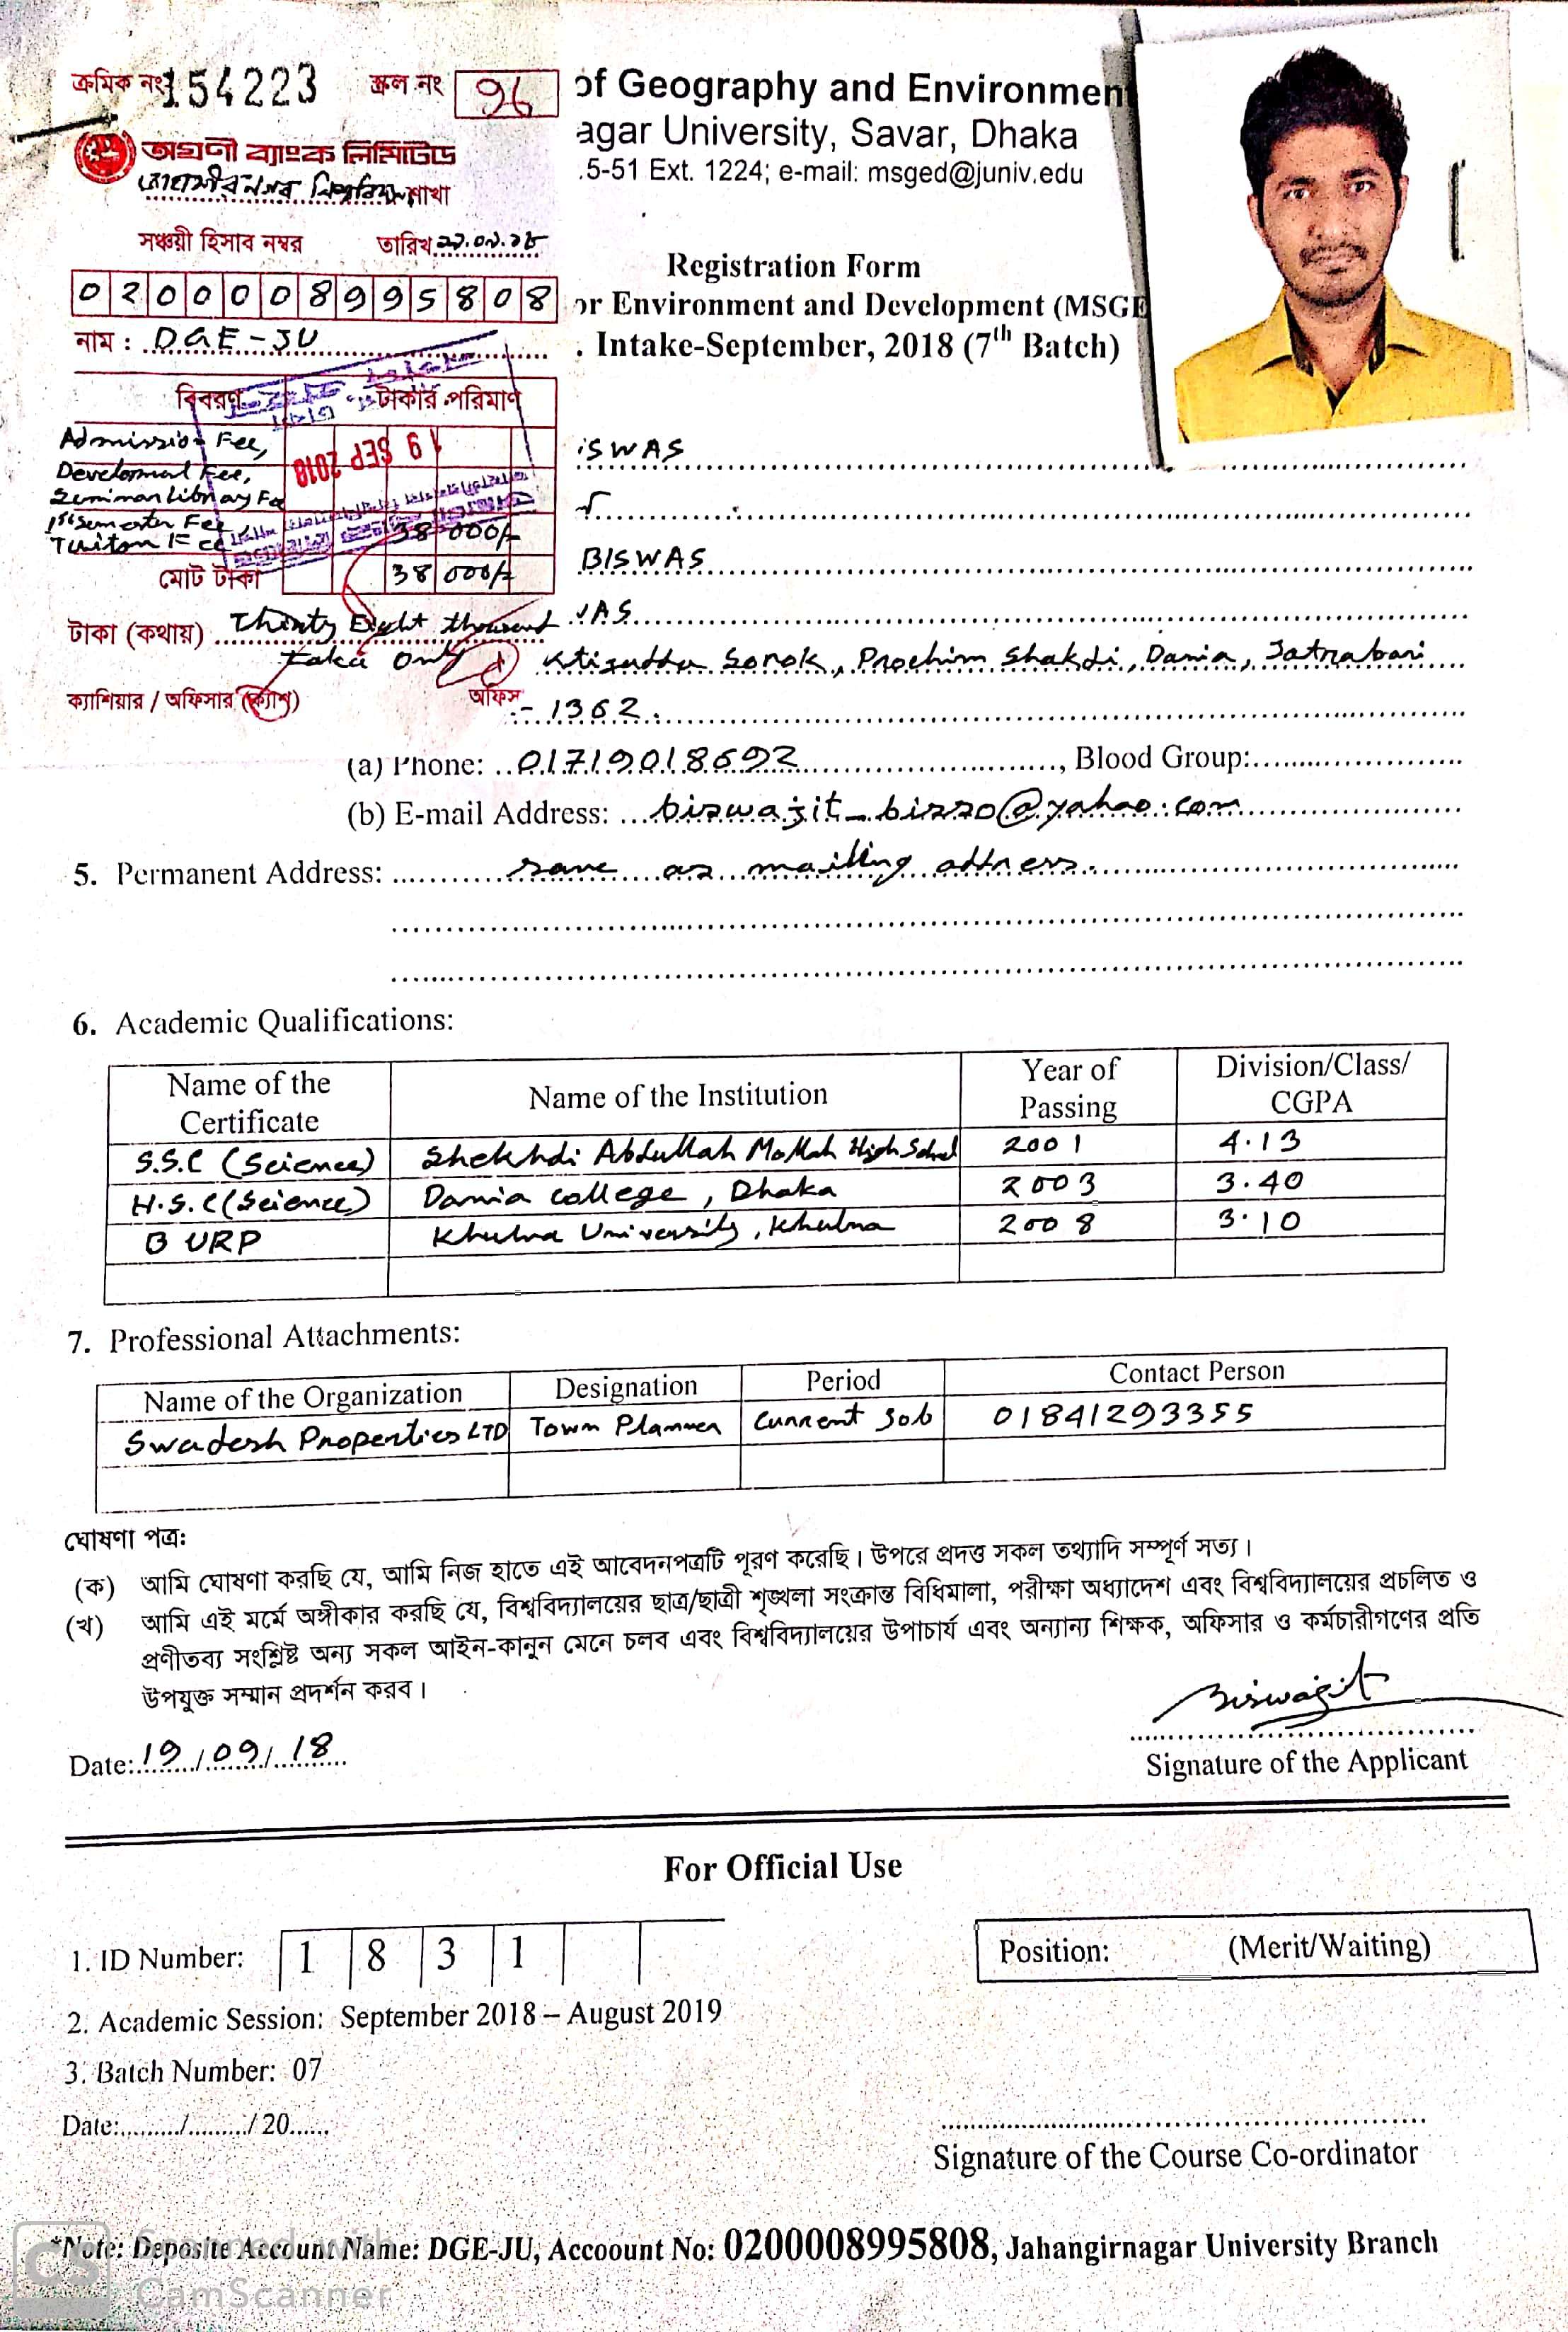 ক্রমিক নং 154223 স্ক্রল নং 96
অগ্রণী ব্যাংক লিমিটেড
শাখা
সঞ্চয়ী হিসাব নম্বর তারিখ
0200008995808
নাম : DGE-JU
বিবরণ টাকার পরিমাণ
Admission Fee,
Fee,
Library
1st semester Fee,
38 000/-
19 SEP 2018
মোট টাকা 38 000/-
টাকা (কথায়) Thirty Eight thousand
taka only
ক্যাশিয়ার / অফিসার (ক্যাশ) অফিস
of Geography and Environmen
agar University, Savar, Dhaka
.5-51 Ext. 1224; e-mail: msged@juniv.edu
Registration Form
or Environment and Development (MSGE
. Intake-September, 2018 (7th Batch)
ISWAS
BISWAS
Sorok, Dania, Jatrabari
- 1362.
(a) Phone: 01719018692, Blood Group:
(b) E-mail Address: biswajit_
5. Permanent Address: same as mailing address.
6. Academic Qualifications:
Name of the Certificate Name of the Institution Year of Passing Division/Class/ CGPA
S.S.C (Science) Shekhdi Abdullah Mollah High School 2001 4.13
H.S.C (Science) Dania college, Dhaka 2003 3.40
B URP Khulna University, Khulna 2008 3.10
7. Professional Attachments:
Name of the Organization Designation Period Contact Person
Swadesh Properties LTD Town Planner Current Job 01841293355
ঘোষণা পত্র:
(ক) আমি ঘোষণা করছি যে, আমি নিজ হাতে এই আবেদনপত্রটি পূরণ করেছি। উপরে প্রদত্ত সকল তথ্যাদি সম্পূর্ণ সত্য।
(খ) আমি এই মর্মে অঙ্গীকার করছি যে, বিশ্ববিদ্যালয়ের ছাত্র/ছাত্রী শৃঙ্খলা সংক্রান্ত বিধিমালা, পরীক্ষা অধ্যাদেশ এবং বিশ্ববিদ্যালয়ের প্রচলিত ও
প্রণীতব্য সংশ্লিষ্ট অন্য সকল আইন-কানুন মেনে চলব এবং বিশ্ববিদ্যালয়ের উপাচার্য এবং অন্যান্য শিক্ষক, অফিসার ও কর্মচারীগণের প্রতি
উপযুক্ত সম্মান প্রদর্শন করব।
Biswajit
Date: 19/09/18
Signature of the Applicant
For Official Use
1. ID Number: 1 8 3 1 Position: (Merit/Waiting)
2. Academic Session: September 2018 – August 2019
3. Batch Number: 07
Date:........./........./20......
Signature of the Course Co-ordinator
*Note: Deposite Account Name: DGE-JU, Accoount No: 0200008995808, Jahangirnagar University Branch
CS Scanned with
CamScanner